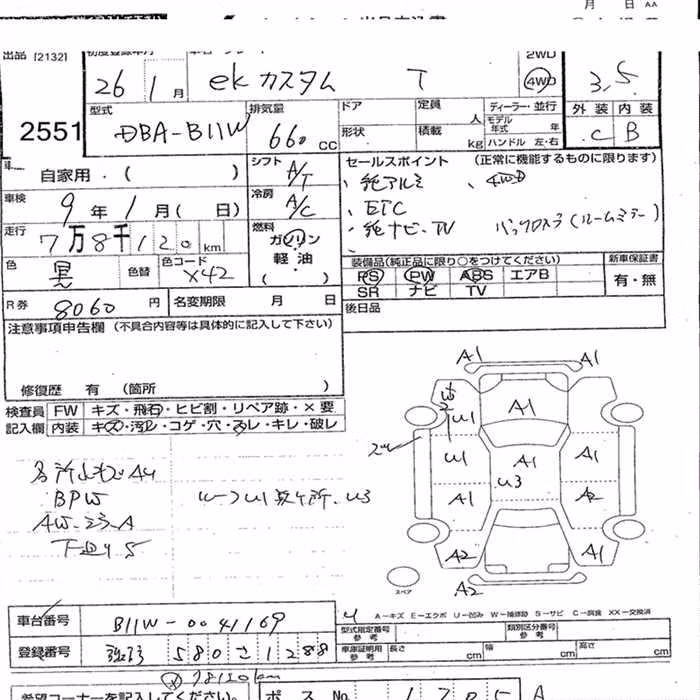 月 日 AA
出品 [2132]
2WD
26 1 月 ek カスタム T 4WD 3.5
型式 排気量 ドア 定員 人 ディーラー・並行 外装 内装
2551 DBA-B11W 660 CC 形状 積載 kg モデル年式 年 ハンドル 左・右 C B
自家用 ・ ( ) シフト A/T セールスポイント (正常に機能するものに限ります)
純アルミ 、 4WD
車検 9 年 1 月 ( 日) 冷房 A/C ETC
走行 7万8千120 km 燃料 ガソリン 純ナビ・TV バックカメラ(ルームミラー)
軽・油
( )
色 黒 色替 色コード X42 装備品(純正品に限り〇をつけてください) 新車保証書
PS PW ABS エアB 有・無
SR ナビ TV
R券 8060 円 名変期限 月 日 後日品
注意事項申告欄 (不具合内容等は具体的に記入して下さい)
修復歴 有 (箇所 )
検査員 FW キズ・飛石・ヒビ割・リペア跡・×要
記入欄 内装 キズ・汚レ・コゲ・穴・スレ・キレ・破レ
A1 A1
W2 U1 A1
U1 A1 A1
A1 U3 A2
A2 A1
A2
BPW
U3
スペア
A-キズ E-エクボ U-凹み W-補修跡 S-サビ C-腐食 XX-交換済
車台番号 B11W-0041169
型式指定番号 参考 類別区分番号 参考
登録番号 580 さ 1288
車庫証明用 参考 長さ cm 幅 cm 高さ cm
78120km
希望コーナーを記入してください。 ポス No. 1705 A